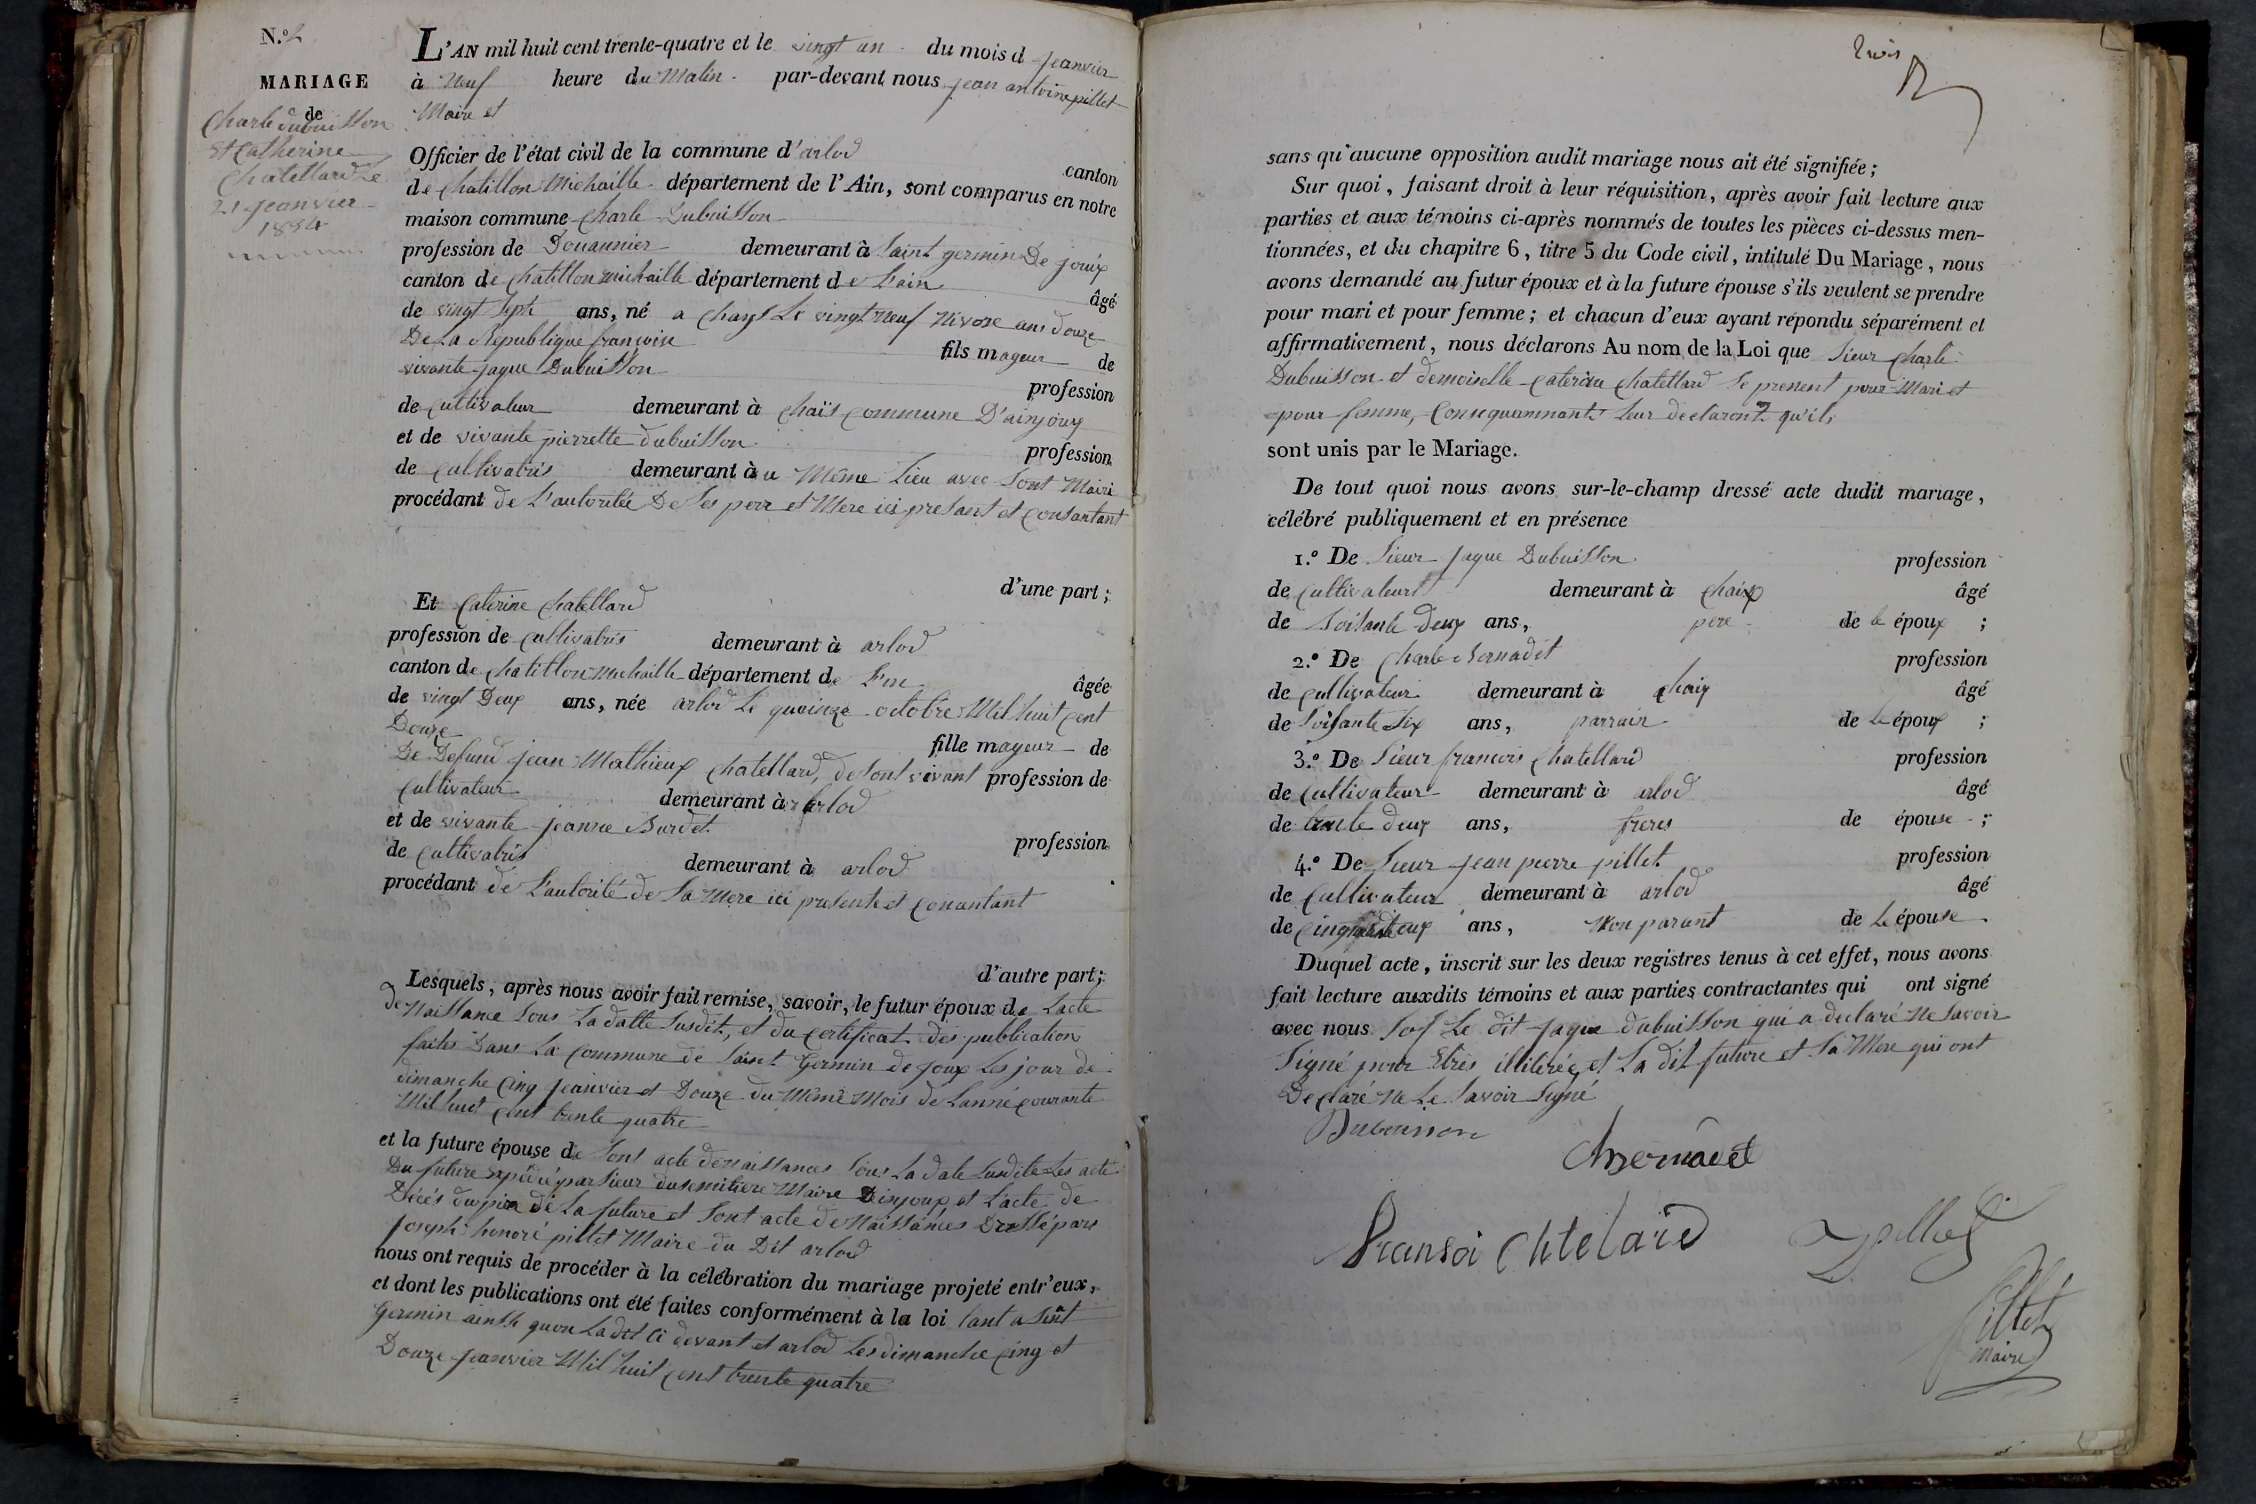 N.º 2
MARIAGE
de
Charle dubuisson
et Catherine
Chatellard Le
21 jeanvier
1834
L'AN mil huit cent trente-quatre et le vingt un du mois d jeanvier
à neuf heure du Matin par-devant nous jean antoine pillet
Maire et
Officier de l'état civil de la commune d'arlod
canton
de Chatillon Michaille département de l'Ain, sont comparus en notre
maison commune Charle Dubuisson
profession de Douannier demeurant à Saint germin De joux
canton de Chatillon michaille département de L'ain
âgé
de vingt Sept ans, né a Chays Le vingt neuf Nivose ans douze
De La République françoise
fils mageur de
vivante jaque Dubuisson
profession
de cultivateur demeurant à Chaïs commune D'ainjoux
et de vivante pierrette dubuisson
profession
de Cultivatris demeurant à u Même Lieu avec Sont Mairi
procédant de L'autoritée De Ses pere et Mere ici presant et Consantant
d'une part ;
Et Caterine Chatellard
profession de Cultivatris demeurant à arlod
canton de Chatillon Michaille département de L'in
âgée
de vingt Deux ans, née arlod Le quainze octobre Mil huit Cent
Douze
fille mageur de
De Defund jean Mathieux Chatellard, de Sont vivant profession de
Cultivateur demeurant à arlod
et de vivante jeanne Burdet
profession
de Cultivatris demeurant à arlod
procédant de L'autorité de Sa Mere ici presente et Consantant
d'autre part;
Lesquels, après nous avoir fait remise, savoir, le futur époux de L'acte
de Naissance Sous La datte Susdit, et du Certificat des publication
faites Dans La Commune de Saint Germin de joux Les jour de
dimanche Cinq jeanvier et Douze du Même Mois de Lanné Courante
Mil huit Cent trente quatre
et la future épouse de Sont acte de naissances Sous La date Susdite Les acte
Du future expédié par Sieur dusemitiere Maire D'einjoux et L'acte de
Décés du pere de La future et Sont acte de Naissances Dressé par
joseph honoré pillet Maire du Dit arlod
nous ont requis de procéder à la célébration du mariage projeté entr'eux,
et dont les publications ont été faites conformément à la loi tant a Sint
Germin ainssi quon La dit Ci devant et arlod Les dimanche Cinq et
Douze jeanvier Mil huit Cent trente quatre
sans qu'aucune opposition audit mariage nous ait été signifiée ;
Sur quoi, faisant droit à leur réquisition, après avoir fait lecture aux
parties et aux témoins ci-après nommés de toutes les pièces ci-dessus men-
tionnées, et du chapitre 6, titre 5 du Code civil, intitulé Du Mariage, nous
avons demandé au futur époux et à la future épouse s'ils veulent se prendre
pour mari et pour femme ; et chacun d'eux ayant répondu séparément et
affirmativement, nous déclarons Au nom de la Loi que Sieur Charle
Dubuisson et demoiselle Caterine Chatellard Se prenent pour Mari et
pour femme, Consequammant Leur declaront qu'ils
sont unis par le Mariage.
De tout quoi nous avons sur-le-champ dressé acte dudit mariage,
célébré publiquement et en présence
1.º De Sieur jaque Dubuisson profession
de Cultivateurs demeurant à Chaix âgé
de Soisante Deux ans, pere de le époux ;
2.º De Charle Bernadet profession
de Cultivateur demeurant à Chaix âgé
de Soisante Six ans, parrain de Le époux ;
3.º De Sieur françois Chatellard profession
de Cultivateur demeurant à arlod âgé
de trente deux ans, freres de épouse ;
4.º De Sieur jean pierre pillet profession
de Cultivateur demeurant à arlod âgé
de ans, Non parant de Le épouse
Duquel acte, inscrit sur les deux registres tenus à cet effet, nous avons
fait lecture auxdits témoins et aux parties contractantes qui ont signé
avec nous Sof Le dit jaque dubuisson qui a declaré Ne Savoir
Signé pour Etres illiterée et La dit future et Sa Mere qui ont
Declaré Ne Le Savoir Signé
Dubuisson
Ch Bernadet
Fransoi Chtelard
pillet
Pillet
Maire